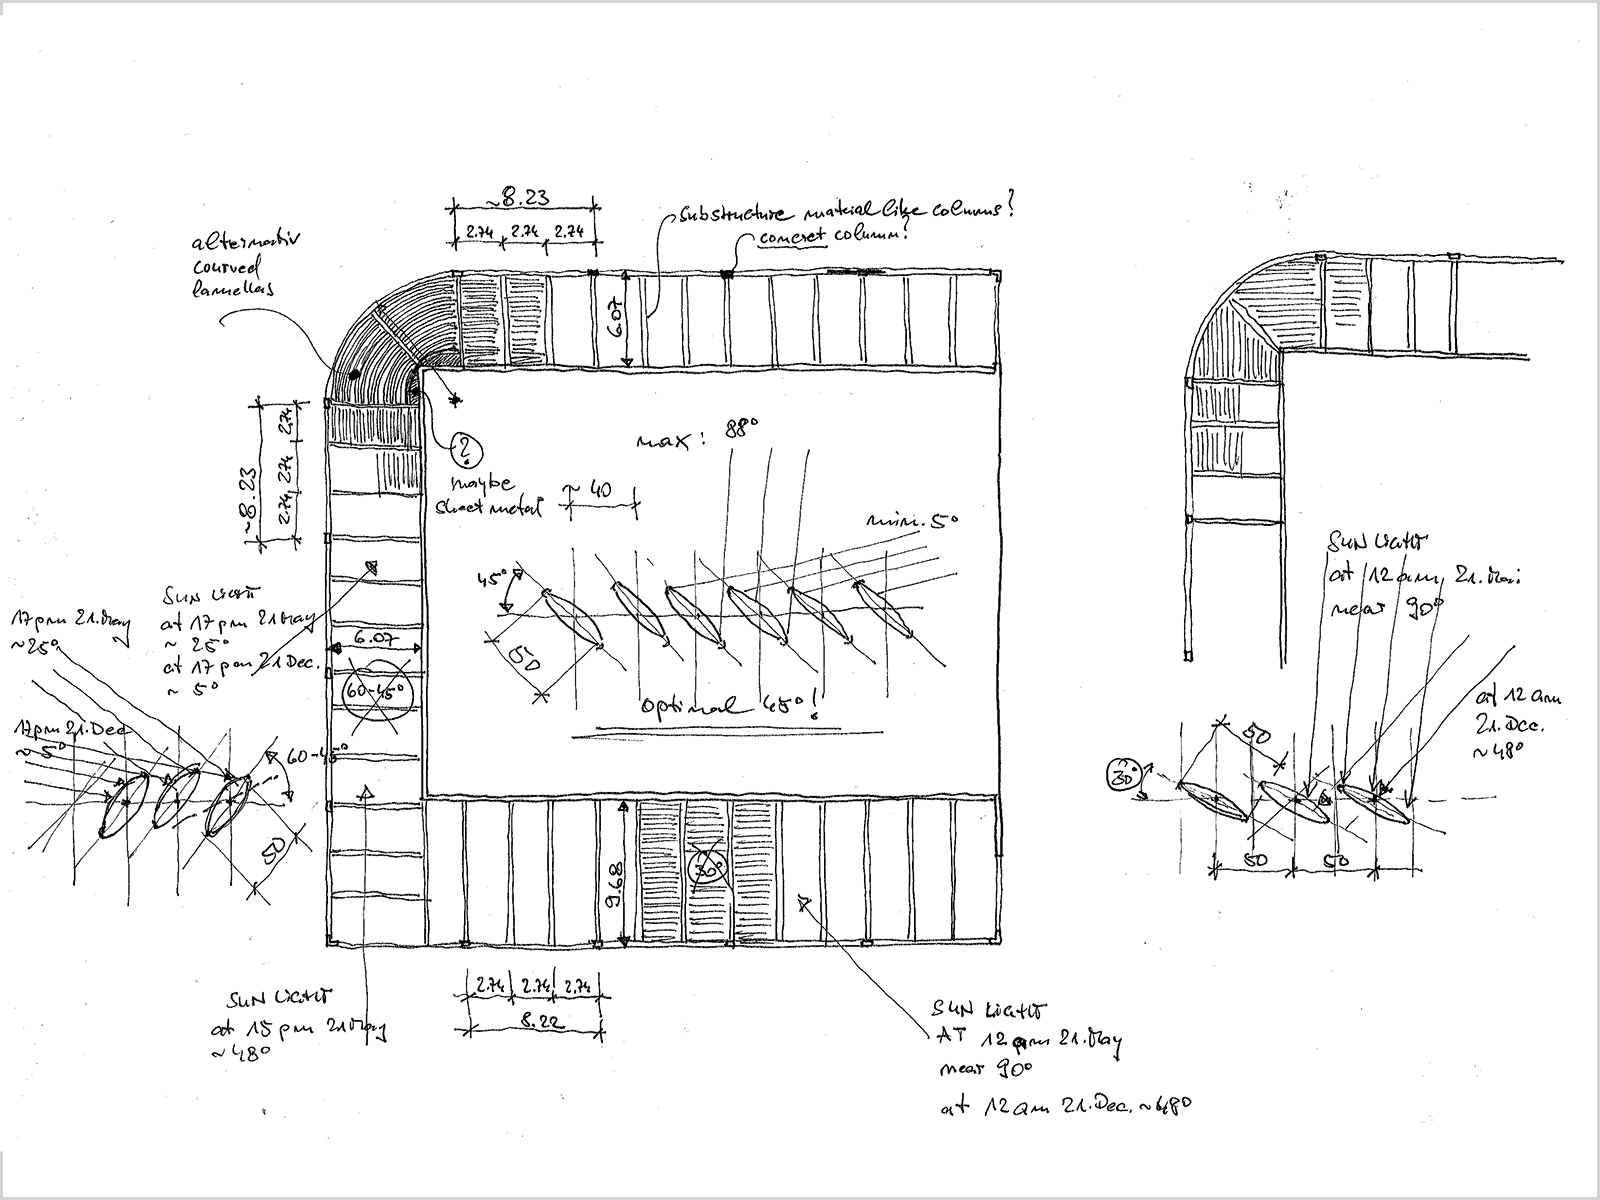 ~8.23
2.74 2.74 2.74
substructure material like columns?
concret column?
alternativ
courved
lamellas
6.07
~8.23
2.74 2.74 2.74
?
maybe
sheet metal
max: 88°
~ 40
min. 5°
45°
50
Optimal 45°!
SUN LIGHT
at 17 pm 21 May
~ 25°
at 17 pm 21 Dec.
~ 5°
17 pm 21. May
~25°
17pm 21. Dec
~ 5°
60-45°
50
6.07
60-45°
9.68
30°
2.74 2.74 2.74
8.22
SUN LIGHT
at 15 pm 21 May
~48°
SUN LIGHT
AT 12 am 21. May
near 90°
at 12 am 21. Dec. ~48°
SUN LIGHT
at 12 am, 21. Mai
near 90°
at 12 am
21. Dec.
~48°
30°
50
50 50